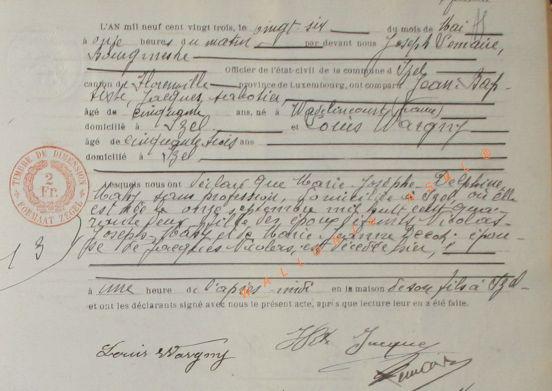 L'AN mil neuf cent vingt trois, le vingt six du mois de Mai
à onze heures du matin, par devant nous Joseph Lemaire,
Bourgmestre
Officier de l'état-civil de la commune d'Izel
canton de Florenville province de Luxembourg, ont comparu Jean-Bap-
tiste Jacques
âgé de cinquante ans, né à Wadelincourt (France)
domicilié à Izel et Louis Wargny
âgé de cinquante trois ans
domicilié à Izel
Lesquels nous ont déclaré que Marie-Josephe Delphine
Maby, sans profession, domiciliée à Izel, où elle
est née le onze mil huit cent qua-
rante deux, fille des époux Nicolas-
Joseph Maby et de Marie Jeanne épou-
se de Jacques Nicolas, est décédée hier,
à une heure de l'après-midi en la maison de son fils à Izel
et ont les déclarants signé avec nous le présent acte, après que lecture leur en a été faite.
Louis Wargny
Jacques
Lemaire
TIMBRE DE DIMENSION
2
Fr.
13